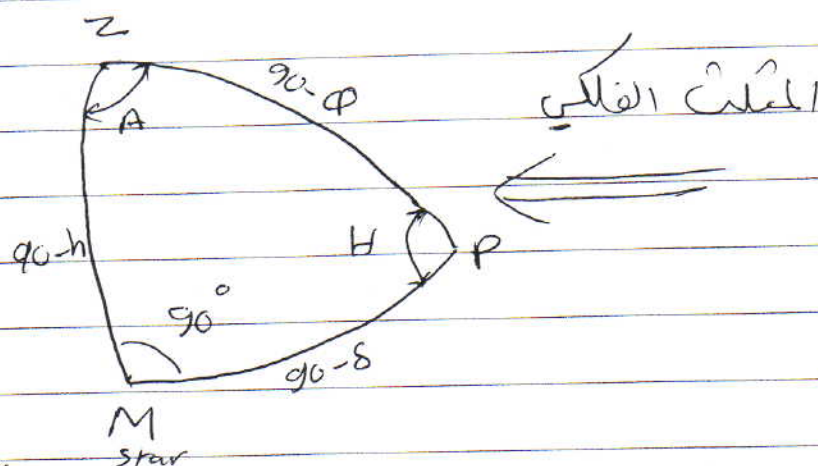 Z
90-φ
المثلث الفلكي
A
90-h
H
P
90°
90-δ
M
star